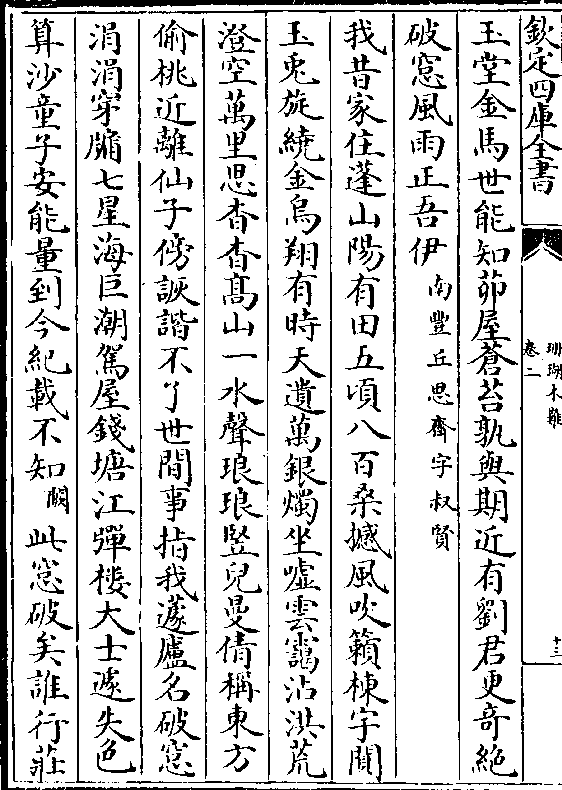 欽定四庫全書
珊瑚木難
卷二
十三
玉堂金馬世能知茆屋蒼苔孰與期近有劉君更奇絶
破窓風雨正吾伊南豐丘思齋字叔賢
我昔家住蓬山陽有田五頃八百桑撼風吹籟棟宇間
玉兎旋繞金烏翔有時天遺萬銀燭坐噓雲靄沾洪荒
澄空萬里思杳杳髙山一水聲琅琅豎兒曼倩稱東方
偷桃近離仙子傍詼諧不了世間事指我蘧廬名破窓
涓涓穿牖七星海巨潮駕屋錢塘江彈棲大士遽失色
算沙童子安能量到今紀載不知闕此窓破矣誰行莊